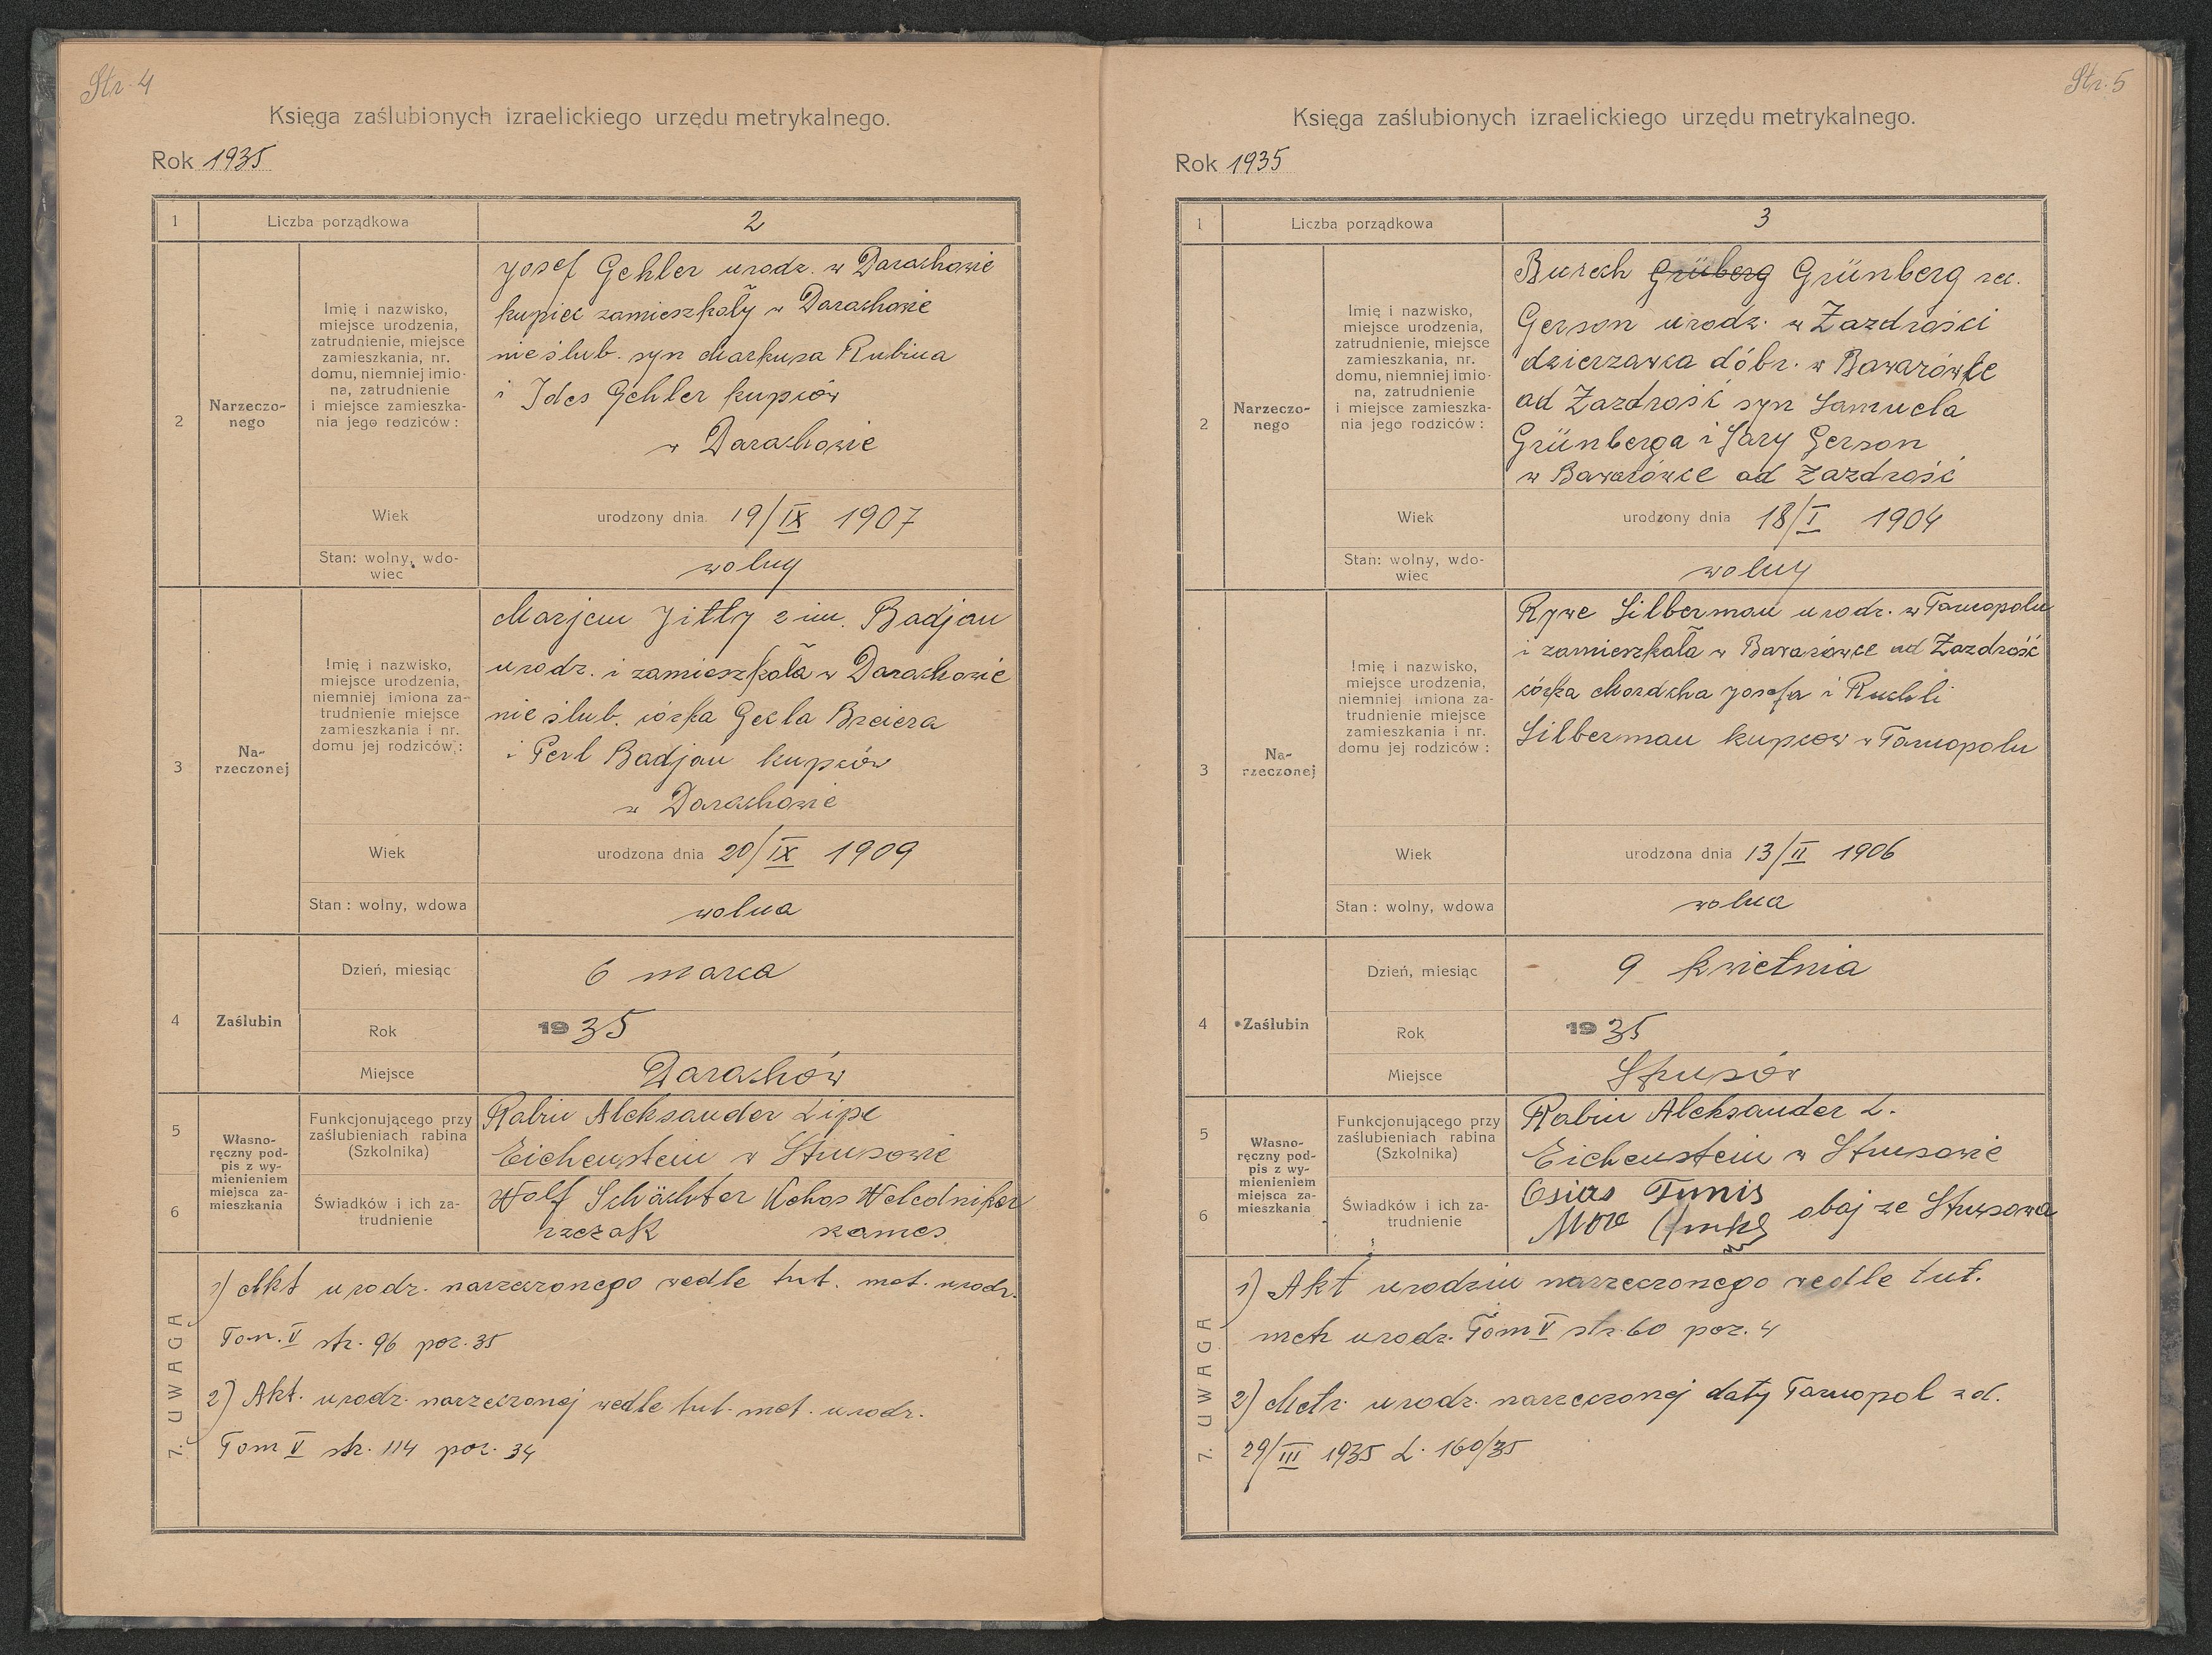 Str. 4
Księga zaślubionych izraelickiego urzędu metrykalnego.
Rok 1935
1 Liczba porządkowa 2
2 Narzeczo-
nego
Imię i nazwisko,
miejsce urodzenia,
zatrudnienie, miejsce
zamieszkania, nr.
domu, niemniej imio-
na, zatrudnienie
i miejsce zamieszka-
nia jego rodziców:
Josef Gehler urodz. w Darachowie
kupiec zamieszkały w Darachowie
nieślub. syn Markusa Rubina
i Ides Gehler kupców
w Darachowie
Wiek urodzony dnia 19/IX 1907
Stan: wolny, wdo-
wiec
wolny
3 Na-
rzeczonej
Imię i nazwisko,
miejsce urodzenia,
niemniej imiona za-
trudnienie miejsce
zamieszkania i nr.
domu jej rodziców:
Marjem Jitty 2 im. Badjan
urodz. i zamieszkała w Darachowie
nieślub. córka Gecla Breiera
i Perl Badjan kupców
w Darachowie
Wiek urodzona dnia 20/IX 1909
Stan: wolny, wdowa wolna
4 Zaślubin
Dzień, miesiąc 6 marca
Rok 1935
Miejsce Darachów
5 6 Własno-
ręczny pod-
pis z wy-
mienieniem
miejsca za-
mieszkania
Funkcjonującego przy
zaślubieniach rabina
(Szkolnika)
Rabin Aleksander Lipe
Eichenstein w Strusowie
Świadków i ich za-
trudnienie
Wolf Schächter
rzezak szames
7. UWAGA
1) Akt urodz. narzeczonego wedle tut. met. urodz.
Tom. V str. 96 poz. 35
2) Akt. urodz. narzeczonej wedle tut. met. urodz.
Tom V str. 114 poz. 34
Str. 5
Księga zaślubionych izraelickiego urzędu metrykalnego.
Rok 1935
1 Liczba porządkowa 3
2 Narzeczo-
nego
Imię i nazwisko,
miejsce urodzenia,
zatrudnienie, miejsce
zamieszkania, nr.
domu, niemniej imio-
na, zatrudnienie
i miejsce zamieszka-
nia jego rodziców:
Burech Grüberg Grünberg rec.
Gerson urodz. w Zazdrości
dzierzawca dóbr. w Bawarówce
ad Zazdrość syn Samuela
Grünberga i Sary Gerson
w Bawarówce ad Zazdrość
Wiek urodzony dnia 18/I 1904
Stan: wolny, wdo-
wiec
wolny
3 Na-
rzeczonej
Imię i nazwisko,
miejsce urodzenia,
niemniej imiona za-
trudnienie miejsce
zamieszkania i nr.
domu jej rodziców:
Rywe Silberman urodz. w Tarnopolu
i zamieszkała w Bawarówce ad Zazdrość
córka Mordcha Josefa i Ruchli
Silberman kupców w Tarnopolu
Wiek urodzona dnia 13/II 1906
Stan: wolny, wdowa wolna
4 Zaślubin
Dzień, miesiąc 9 kwietnia
Rok 1935
Miejsce Strusów
5 6 Własno-
ręczny pod-
pis z wy-
mienieniem
miejsca za-
mieszkania
Funkcjonującego przy
zaślubieniach rabina
(Szkolnika)
Rabin Aleksander L.
Eichenstein w Strusowie
Świadków i ich za-
trudnienie
Osias Tunis
obaj ze Strusowa
7. UWAGA
1) Akt urodzin narzeczonego wedle tut.
metr urodz. Tom V str. 60 poz. 4
2) Metr. urodz. narzeczonej daty Tarnopol z d.
29/III 1935 L. 160/35